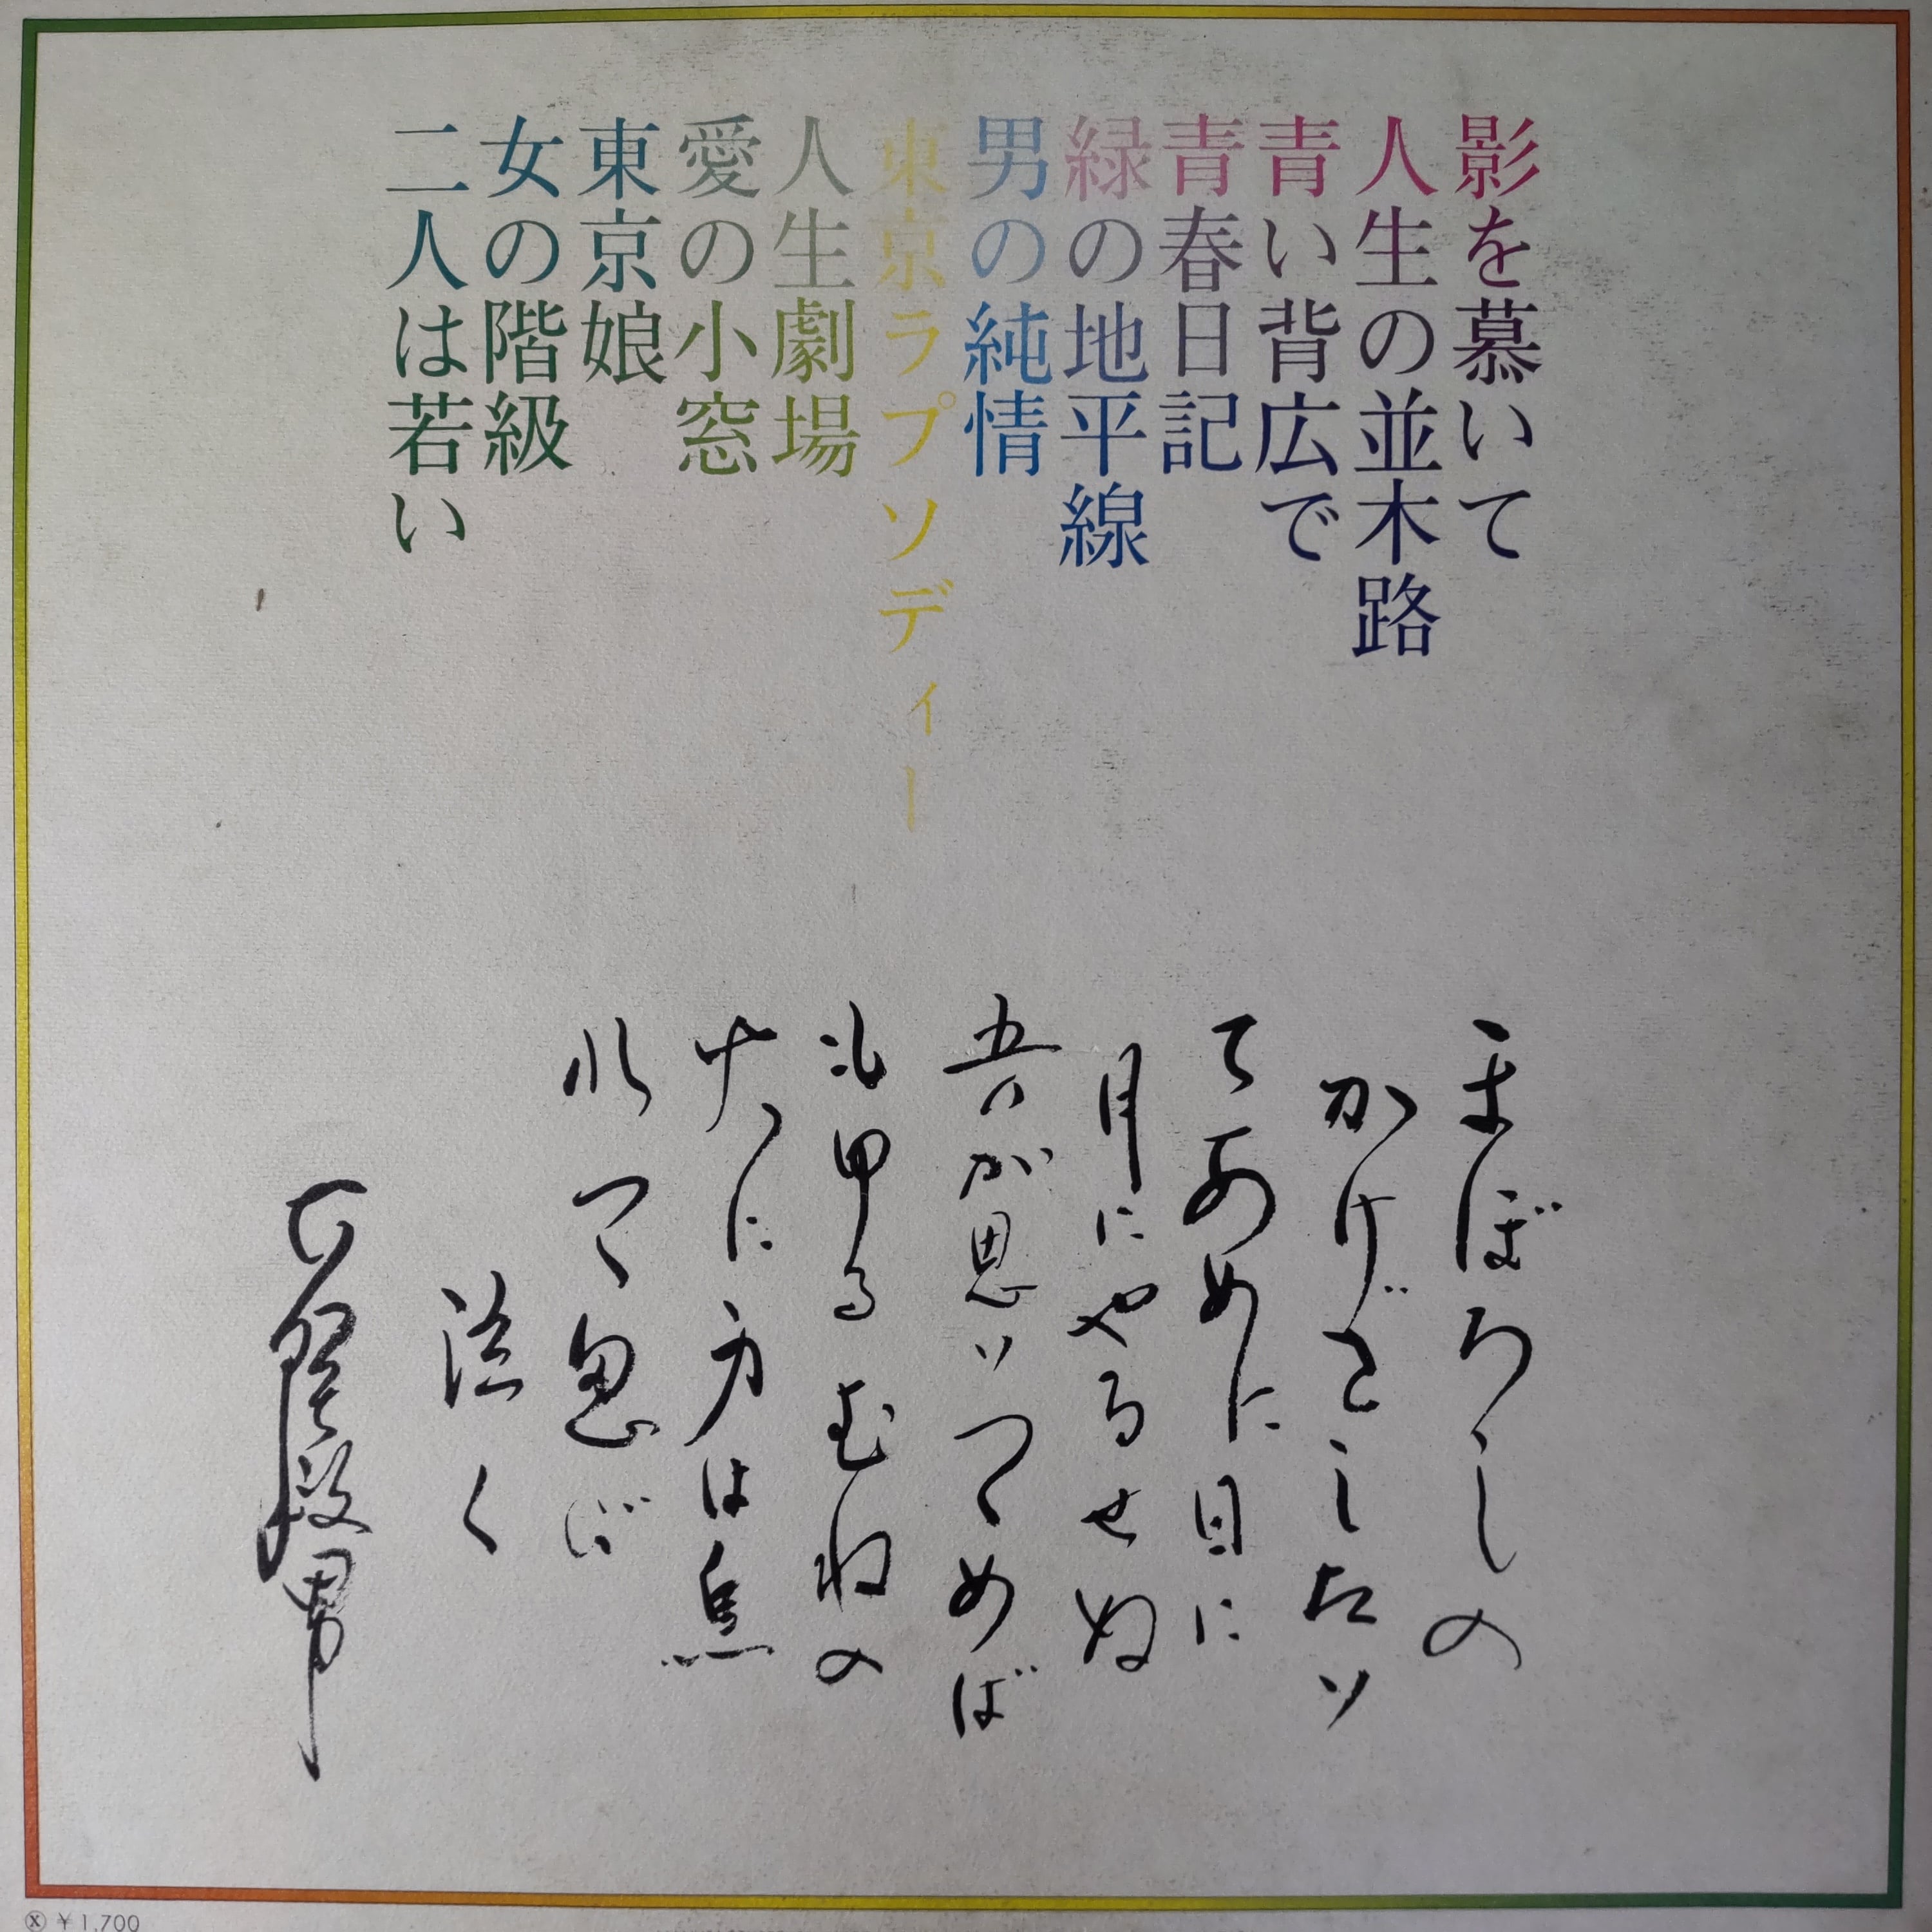 影を慕いて
人生の並木路
青い背広で
青春日記
緑の地平線
男の純情
東京ラプソディー
人生劇場
愛の小窓
東京娘
女の階級
二人は若い
まぼろしの
かげをしたい
てあめに日に
月にやるせぬ
吾が思いつゝめば
もゆるむねの
火に身は焦
れつゝ忍び
泣く
古賀政男
ⓧ ¥1,700